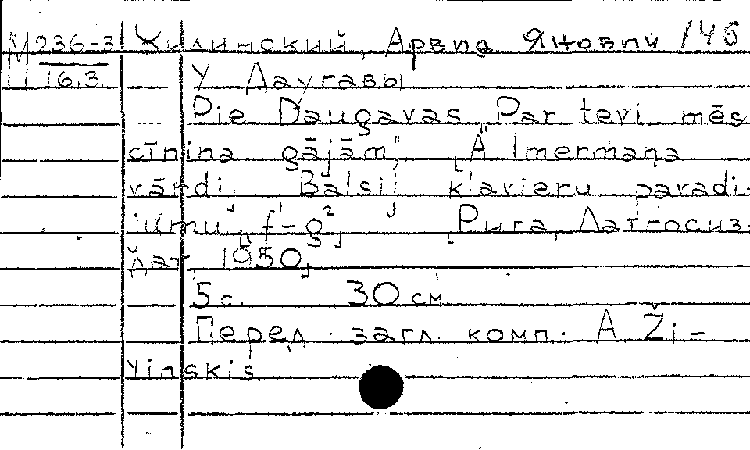 М 236-3 Жилинский, Арвид Янович /45
16.3 У Даугавы
Pie Daugavas „Par tevi mēs
cīņiņa gājām", [A Imermaņa
vārdi]. Balsij klavieru pavadī-
jumu, f'-g². [Рига, Латгосиз-
дат 1950]
5 с. 30 см
Перед загл. комп.: A Ži-
linskis